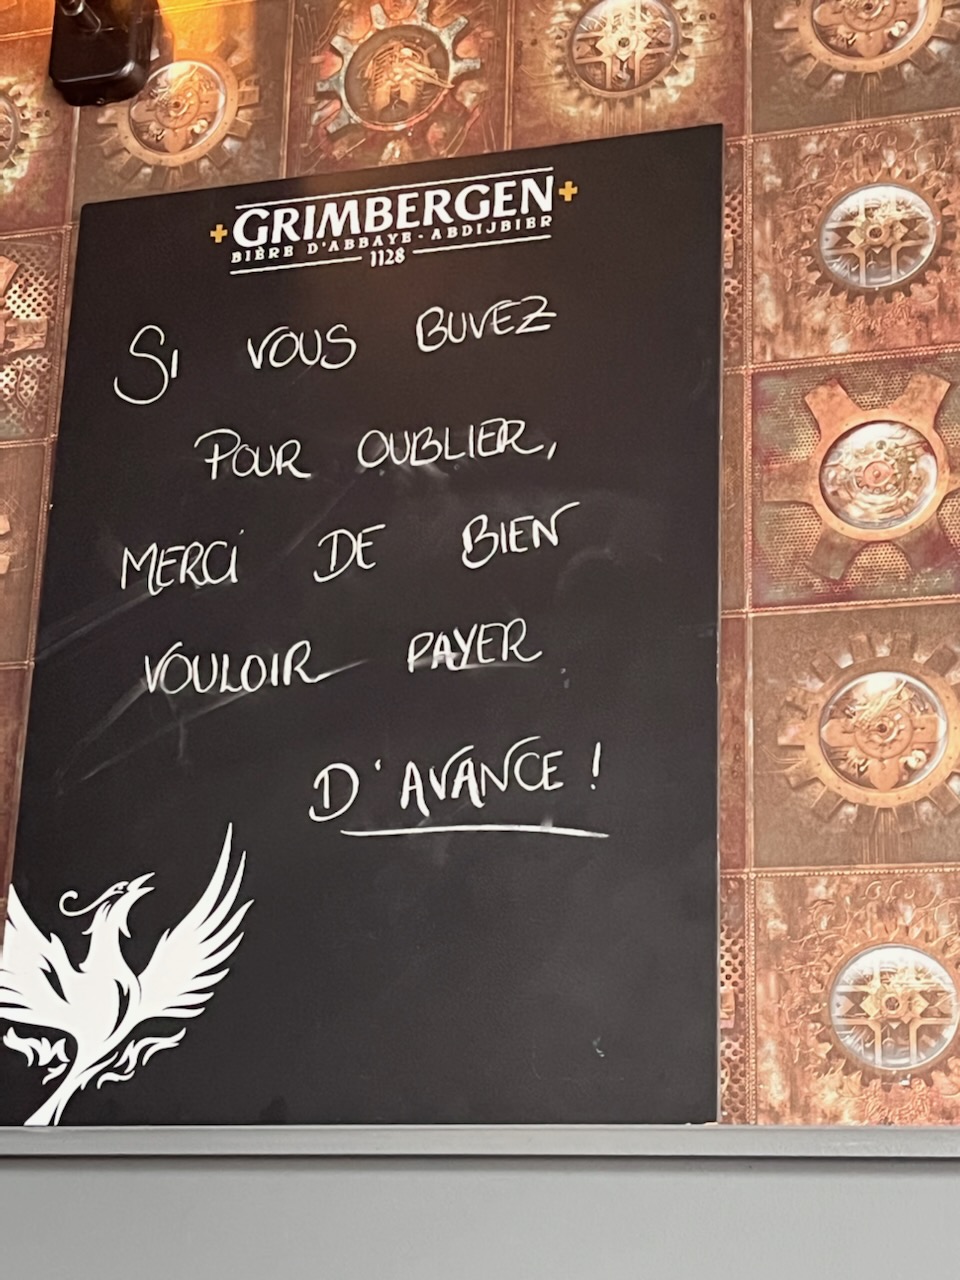 GRIMBERGEN
BIÈRE D'ABBAYE - ABDIJBIER
1128
SI VOUS BUVEZ
POUR OUBLIER,
MERCI DE BIEN
VOULOIR PAYER
D'AVANCE !